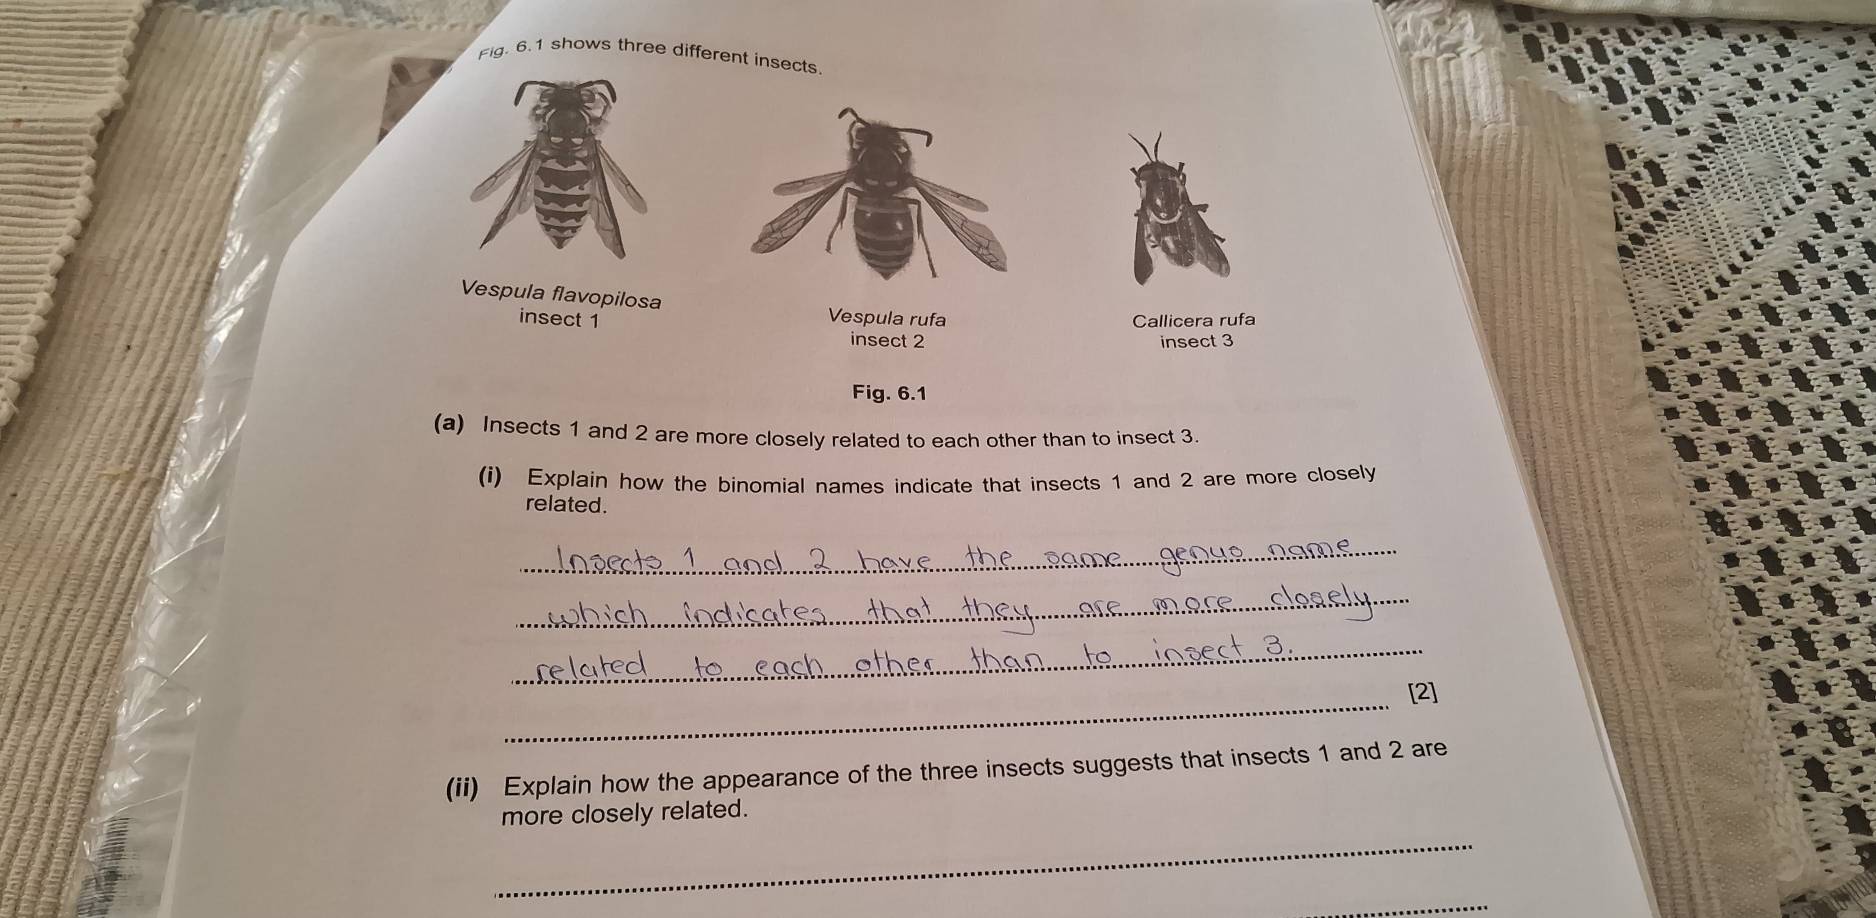 Fig. 6.1 shows three different insects.
Vespula flavopilosa
insect 1
Vespula rufa
insect 2
Callicera rufa
insect 3
Fig. 6.1
(a) Insects 1 and 2 are more closely related to each other than to insect 3.
(i) Explain how the binomial names indicate that insects 1 and 2 are more closely
related.
Insects 1 and 2 have the same genus name
which indicates that they are more closely
related to each other than to insect 3.
[2]
(ii) Explain how the appearance of the three insects suggests that insects 1 and 2 are
more closely related.